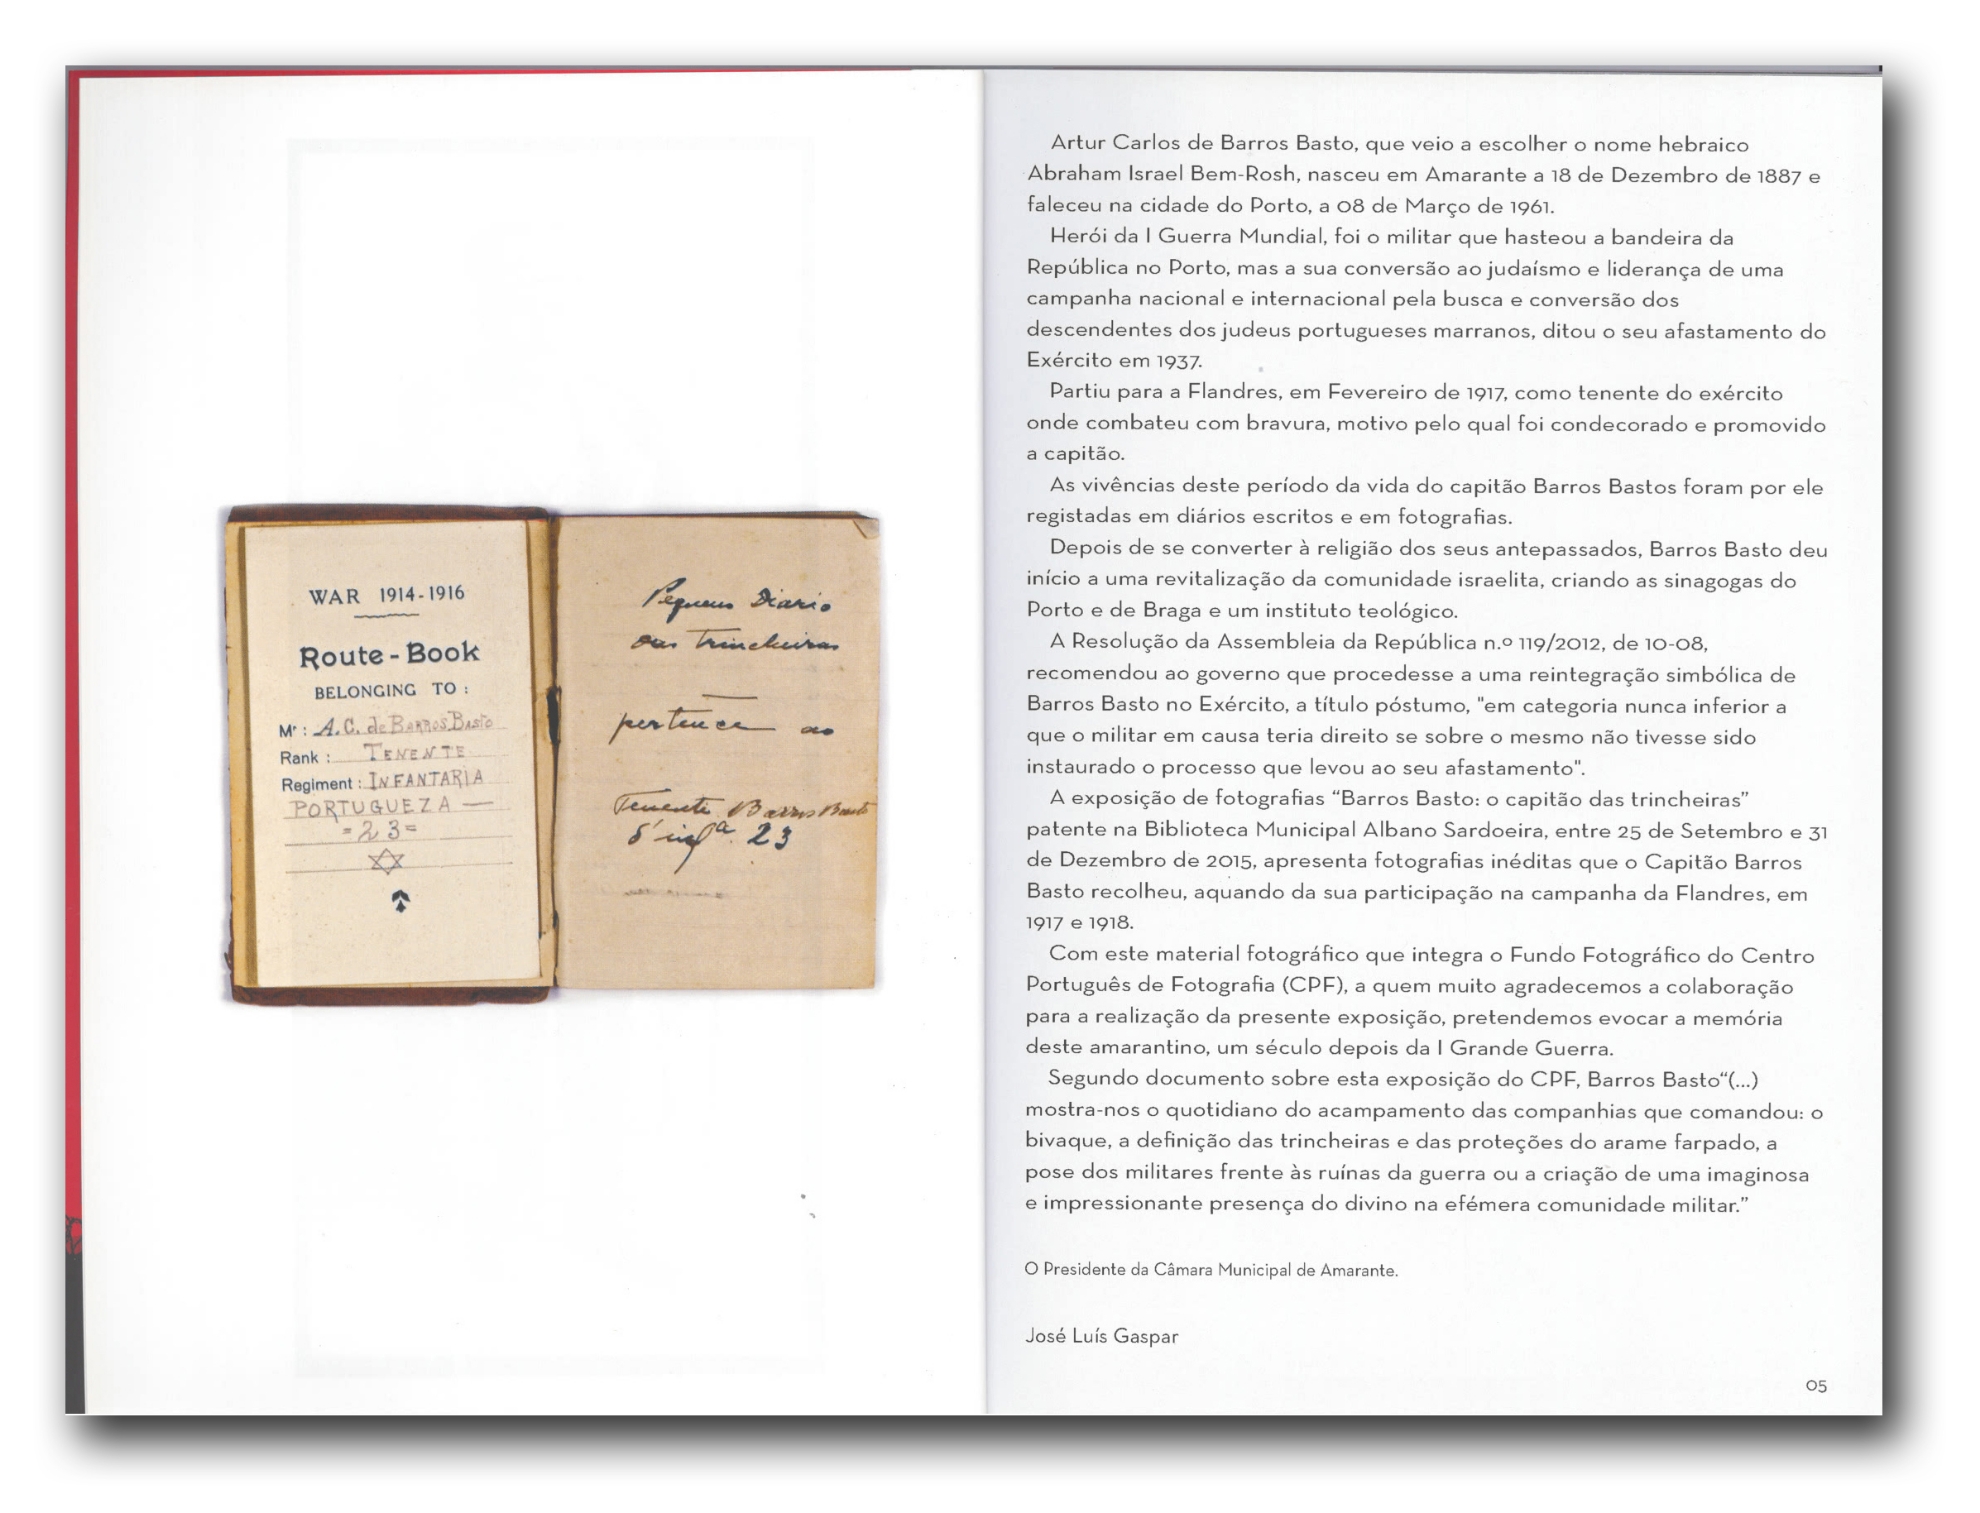 WAR 1914-1916
Route-Book
BELONGING TO :
Mr : A. C. de BARROS BASTO
Rank : TENENTE
Regiment : INFANTARIA
PORTUGUEZA —
=23=
Pequeno Diario
das trincheiras
pertence ao
Tenente Barros Basto
d'infª. 23
Artur Carlos de Barros Basto, que veio a escolher o nome hebraico
Abraham Israel Bem-Rosh, nasceu em Amarante a 18 de Dezembro de 1887 e
faleceu na cidade do Porto, a 08 de Março de 1961.
Herói da I Guerra Mundial, foi o militar que hasteou a bandeira da
República no Porto, mas a sua conversão ao judaísmo e liderança de uma
campanha nacional e internacional pela busca e conversão dos
descendentes dos judeus portugueses marranos, ditou o seu afastamento do
Exército em 1937.
Partiu para a Flandres, em Fevereiro de 1917, como tenente do exército
onde combateu com bravura, motivo pelo qual foi condecorado e promovido
a capitão.
As vivências deste período da vida do capitão Barros Bastos foram por ele
registadas em diários escritos e em fotografias.
Depois de se converter à religião dos seus antepassados, Barros Basto deu
início a uma revitalização da comunidade israelita, criando as sinagogas do
Porto e de Braga e um instituto teológico.
A Resolução da Assembleia da República n.º 119/2012, de 10-08,
recomendou ao governo que procedesse a uma reintegração simbólica de
Barros Basto no Exército, a título póstumo, "em categoria nunca inferior a
que o militar em causa teria direito se sobre o mesmo não tivesse sido
instaurado o processo que levou ao seu afastamento".
A exposição de fotografias “Barros Basto: o capitão das trincheiras”
patente na Biblioteca Municipal Albano Sardoeira, entre 25 de Setembro e 31
de Dezembro de 2015, apresenta fotografias inéditas que o Capitão Barros
Basto recolheu, aquando da sua participação na campanha da Flandres, em
1917 e 1918.
Com este material fotográfico que integra o Fundo Fotográfico do Centro
Português de Fotografia (CPF), a quem muito agradecemos a colaboração
para a realização da presente exposição, pretendemos evocar a memória
deste amarantino, um século depois da I Grande Guerra.
Segundo documento sobre esta exposição do CPF, Barros Basto“(...)
mostra-nos o quotidiano do acampamento das companhias que comandou: o
bivaque, a definição das trincheiras e das proteções do arame farpado, a
pose dos militares frente às ruínas da guerra ou a criação de uma imaginosa
e impressionante presença do divino na efémera comunidade militar.”
O Presidente da Câmara Municipal de Amarante.
José Luís Gaspar
05